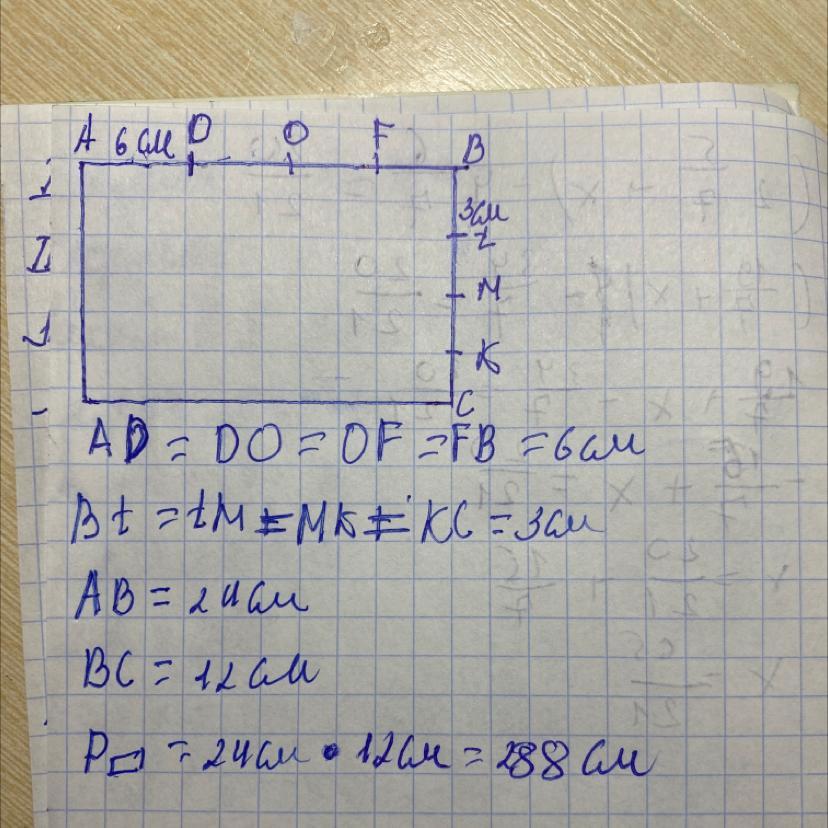 A 6 см D O F B
3см
t
M
K
C
AD = DO = OF = FB = 6 см
Bt = tM = MK = KC = 3см
AB = 24см
BC = 12 см
P▭ = 24см • 12см = 288 см